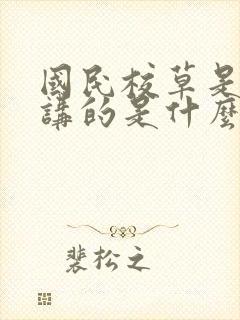 國民校草是
講的是什麼
裴松之